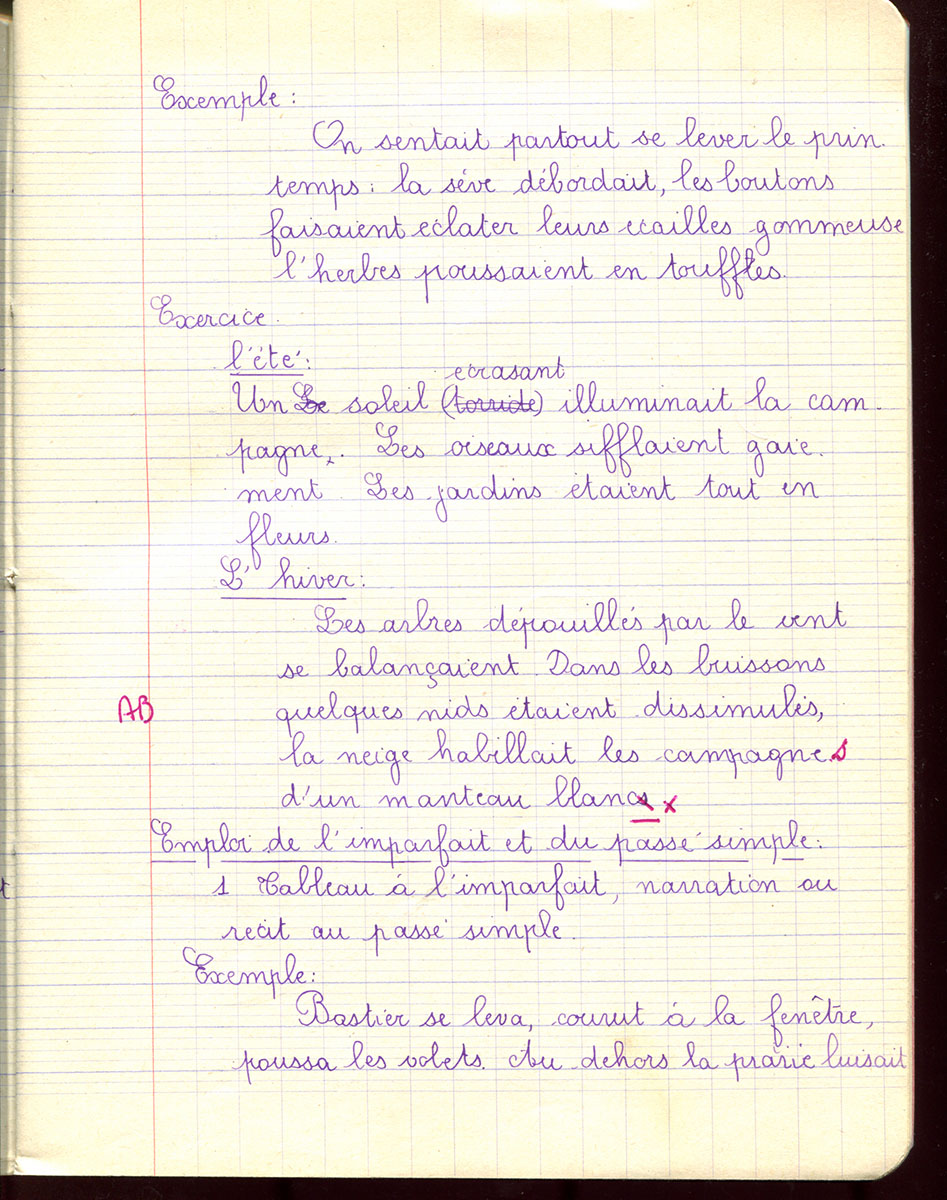 Exemple :
On sentait partout se lever le prin.
temps : la séve débordait, les boutons
faisaient eclater leurs ecailles gommeuse
l'herbes poussaient en touffles.
Exercice.
l'été :
ecrasant
Un Le soleil (torride) illuminait la cam.
pagne. Les oiseaux sifflaient gaie.
ment. Les jardins étaient tout en
fleurs.
L'hiver :
Les arbres dépouillés par le vent
se balançaient. Dans les buissons
AB quelques nids étaient dissimulés,
la neige habillait les campagnes
d'un manteau blancs x
Emploi de l'imparfait et du passé simple :
1 Tableau à l'imparfait, narration ou
recit au passé simple.
Exemple :
Bastier se leva, courut à la fenêtre,
poussa les volets. Au dehors la prairie luisait